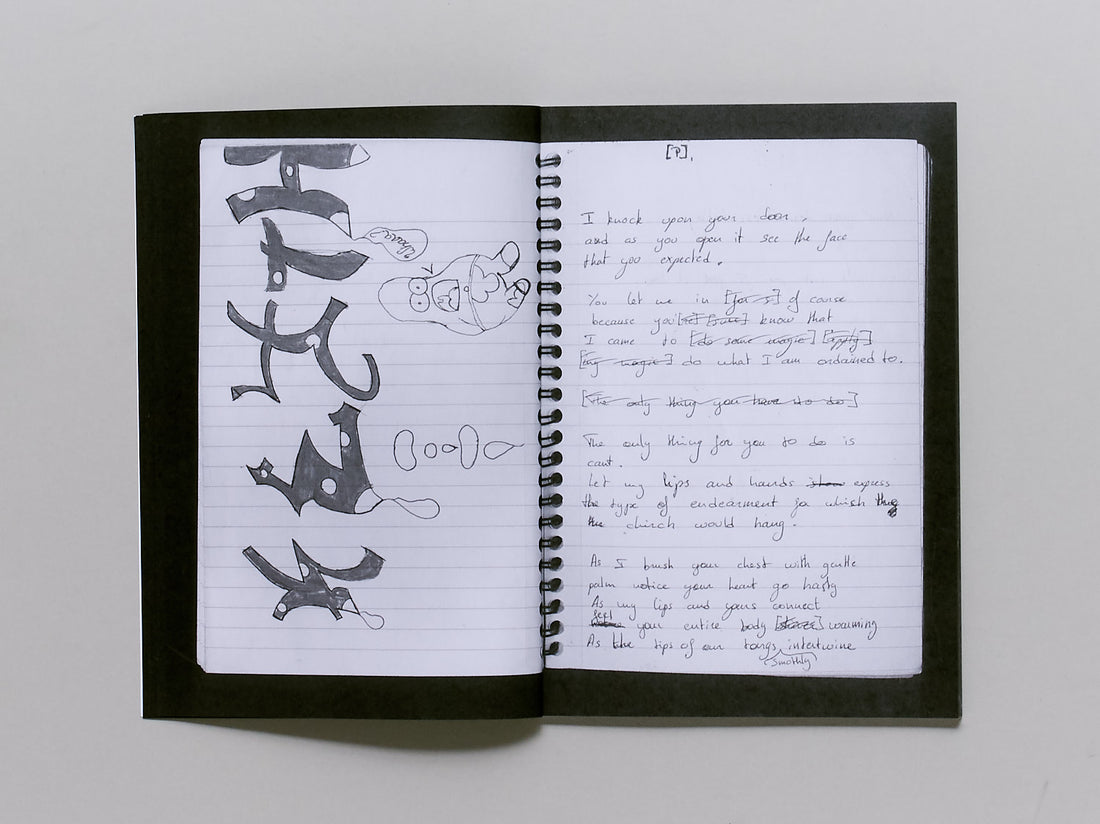 [?].
I knock upon your door.
and as you open it see the face
that you expected.
You let me in [for s] of cause
because you know that
I came to [do some magic] [apply]
[my magic] do what I am ordained to.
[The only thing you have to do]
The only thing for you to do is
cant.
Let my lips and hands express
the type of endearment for which
the chirch would hang.
As I brush your chest with gentle
palm notice your heart go hasty
As my lips and yours connect
feel your entire body warming
As the tips of our tongs intertwine
smothly